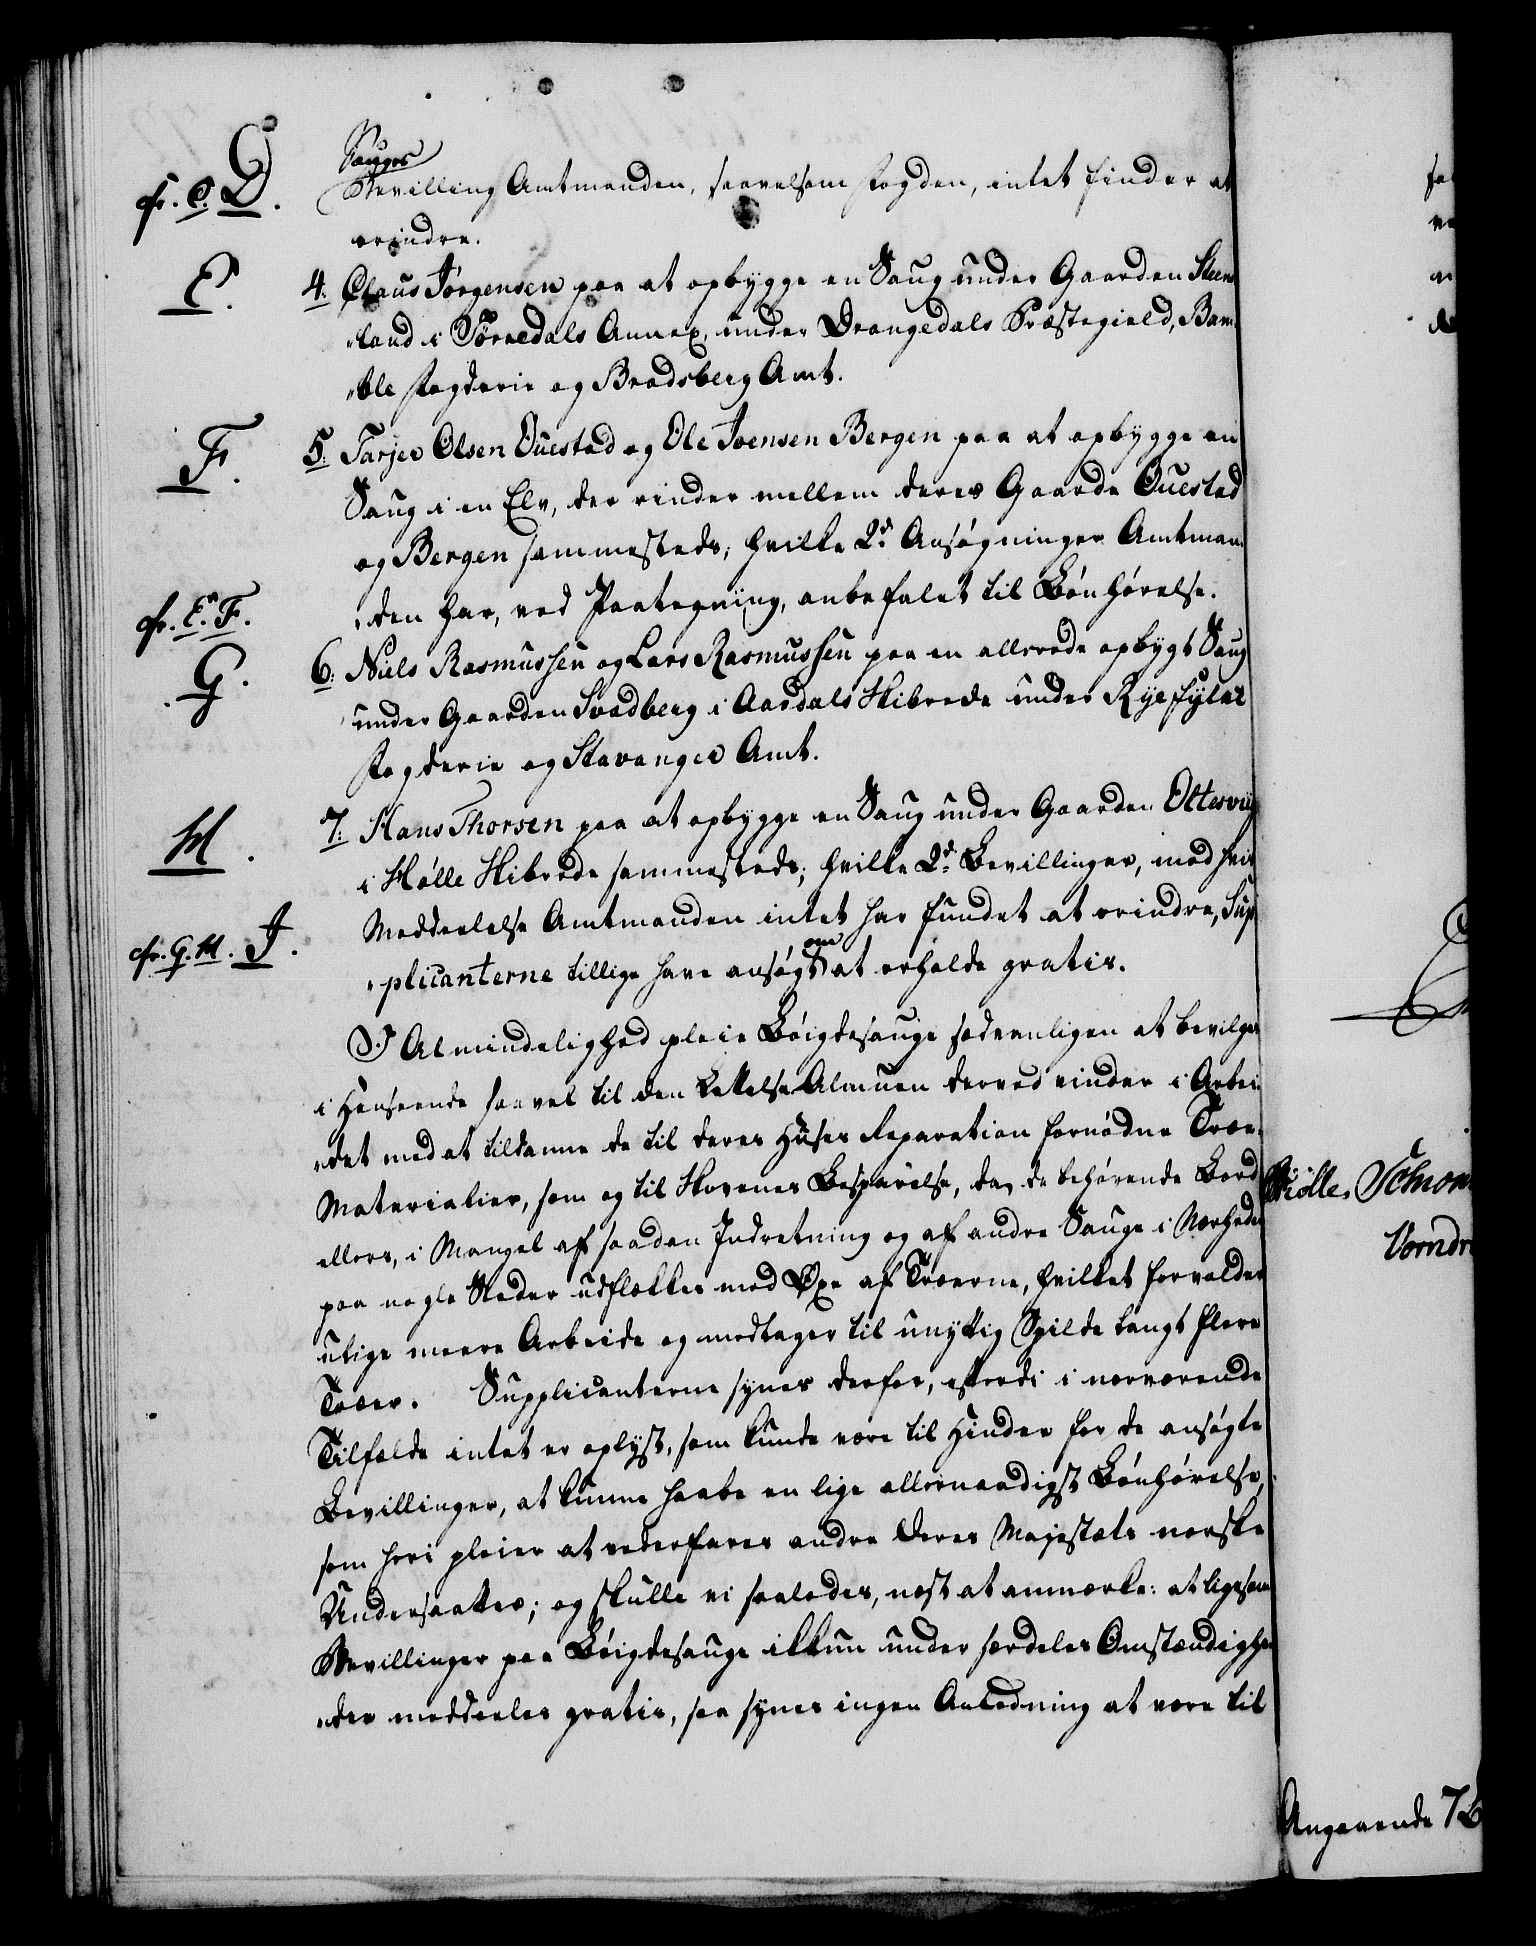 Sauges
cfr. C. D. Bevilling Amtmanden, saavelsom Fogden, intet finder at
erindre.
E. 4. Claus Jørgensen paa at opbygge en Saug under Gaarden Steens
„land i Tørredals Annex, under Drangedals Præstegield, Bam
„ble Fogderie og Bradsberg Amt.
F. 5. Tarjer Olsen Ouestad og Ole Joensen Bergen paa at opbygge en
Saug i en Elv, der rinder mellem deres Gaarde Ouestad
og Bergen sammesteds; hvilke 2de Ansøgninger Amtman
cfr. E. F. „den har, ved Paategning, anbefalet til Bønhørelse.
G. 6. Niels Rasmussen og Lars Rasmussen paa en allerede opbygt Saug
under Gaarden Svadberg i Aardals Skibrede under Ryefylke
Fogderie og Stavanger Amt.
H. 7. Hans Thorsen paa at opbygge en Saug under Gaarden Ottesvig
i Hølle Skibrede sammesteds; hvilke 2de Bevillinger, med hvis
Meddeelelse Amtmanden intet har fundet at erindre, Sup
om
cfr. G. H. J. „plicanterne tillige have ansøgt at erholde gratis.
I Almindelighed pleie Bøigdesauge sædvanligen at bevilges
i Henseende saavel til den Lettelse Almuen derved vinder i Arbei
„det med at tildanne de til deres Huses Reparation fornødne Træe-
Materialier, som og til Skovenes Besparelse, da de behøvende Bord
ellers, i Mangel af saadan Indretning og af andre Sauge i Nærheden
paa nogle Steder udflækkes med Øxe af Træerne, hvilket forvolder
ulige meere Arbeide og medtager til unyttig Spilde langt flere
Træer. Supplicanterne synes derfor, efterdi i nærværende
Tilfælde intet er oplyst, som kunde være til Hinder for de ansøgte
Bevillinger, at kunne haabe en lige allernaadigst Bønhørelse,
som heri pleier at vederfares andre Deres Majestæts norske
Undersaatter; og skulle vi saaledes, næst at anmærke: at ligesom
Bevillinger paa Bøigdesauge ikkun under særdeles Omstændighe
„der meddeeles gratis, saa synes ingen Anledning at være til
Schow
Vorndr
Angaaende 72